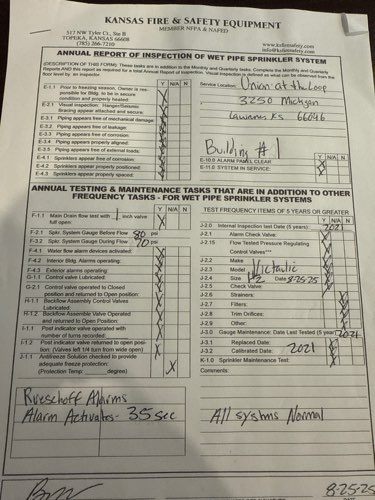 KANSAS FIRE & SAFETY EQUIPMENT
MEMBER NFPA & NAFED
517 NW Tyler Ct., Ste B
TOPEKA, KANSAS 66608
(785) 266-7210
www.ksfiresafety.com
ANNUAL REPORT OF INSPECTION OF WET PIPE SPRINKLER SYSTEM
(DESCRIPTION OF THIS FORM: These tasks are in addition to the Monthly and Quarterly tasks. Complete the Monthly and Quarterly
Reports AND this report as required for a total Annual Report of Inspection. Visual Inspection is defined as what can be obtained from the
floor level by an inspector.
Y N/A N
E-1.1 Prior to freezing season, Owner is responsible for Bldg. to be in secure condition and properly heated:
E-2.1 Visual inspection: Hanger/Seismic Bracing appear attached and secure:
E-3.1 Piping appears free of mechanical damage:
E-3.2 Piping appears free of leakage:
E-3.3 Piping appears free of corrosion:
E-3.4 Piping appears properly aligned:
E-3.5 Piping appears free of external loads:
E-4.1 Sprinklers appear free of corrosion:
E-4.2 Sprinklers appear properly positioned:
E-4.3 Sprinklers appear properly spaced:
Service Location: Union at the Loop
3250 Michigan
Lawrence KS 66046
Building #1
Y N
E-10.0 ALARM PANEL CLEAR
E-11.0 SYSTEM IN SERVICE
ANNUAL TESTING & MAINTENANCE TASKS THAT ARE IN ADDITION TO OTHER
FREQUENCY TASKS - FOR WET PIPE SPRINKLER SYSTEMS
Y N/A N
F-1.1 Main Drain flow test with 1 inch valve
full open:
F-2.1 Spkr. System Gauge Before Flow 80 psi
F-2.2 Spkr. System Gauge During Flow 70 psi
F-4.1 Water flow alarm devices activated:
F-4.2 Interior Bldg. Alarms operating:
F-4.3 Exterior alarms operating:
G-1.1 Control valve Lubricated:
G-2.1 Control valve operated to Closed
position and returned to Open position:
H-1.1 Backflow Assembly Control Valves
Lubricated:
H-1.2 Backflow Assembly Valve Operated
and returned to Open Position:
I-1.1 Post indicator valve operated with
number of turns recorded:
I-1.2 Post indicator valve returned to open position: (Valves left 1/4 turn from wide open)
J-1.1 Antifreeze Solution checked to provide
adequate freeze protection:
(Protection Temp. degree)
TEST FREQUENCY ITEMS OF 5 YEARS OR GREATER
Y N/A N
J-2.0 Internal Inspection last Date (5 years):
J-2.1 Alarm Check Valve:
J-2.15 Flow Tested Pressure Regulating
Control Valves***
J-2.2 Make
J-2.3 Model Victaulic
J-2.4 Size 2 Date 8-25-25
J-2.5 Check Valve:
J-2.6 Strainers:
J-2.7 Filters:
J-2.8 Trim Orifices:
J-2.9 Other:
J-3.0 Gauge Maintenance: Date Last Tested (5 year) 2021
J-3.1 Replaced Date:
J-3.2 Calibrated Date: 2021
K-1.0 Sprinkler Maintenance Test:
Comments:
Rueschoff Alarms
Alarm Activates - 35 sec
All systms Normal
8-25-25